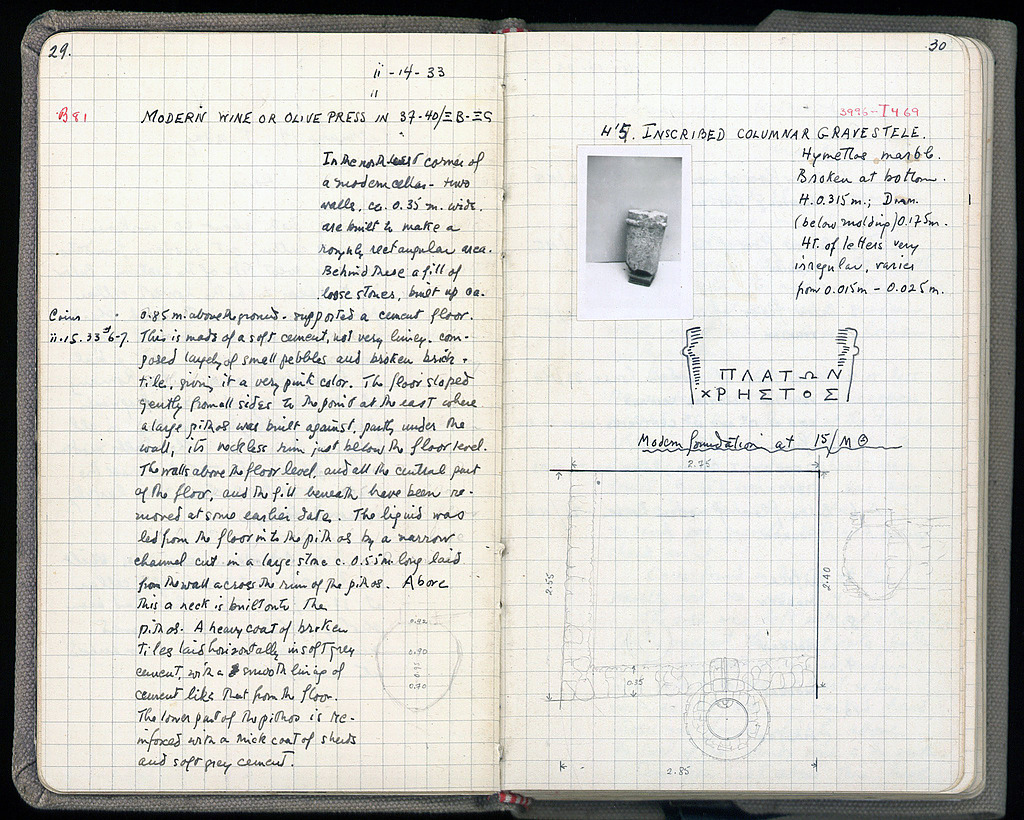 29.
ii - 14 - 33
"
B 81
MODERN WINE OR OLIVE PRESS IN 37-40/ΞB-ΞS
In the north east corner of
a modern cellar - two
walls, ca. 0.35 m. wide.
are built to make a
roughly rectangular area.
Behind these a fill of
loose stones, built up ca.
Coins
0.85 m. above the ground - supported a cement floor.
ii.15.33 #6-7.
This is made of a soft cement, not very limey. com-
posed largely of small pebbles and broken brick +
tile, giving it a very pink color. The floor sloped
gently from all sides to the point at the east where
a large pithos was built against, partly under the
wall, its neckless rim just below the floor level.
The walls above the floor level, and all the central part
of the floor, and the fill beneath have been re-
moved at some earlier date. The liquid was
led from the floor into the pithos by a narrow
channel cut in a large stone c. 0.55m long laid
from the wall across the rim of the pithos. Above
this a neck is built onto the
pithos. A heavy coat of broken
tiles laid horizontally in soft grey
cement, with a smooth lining of
cement like that from the floor.
The lower part of the pithos is re-
inforced with a thick coat of sherds
and soft grey cement.
0.92
0.90
0.70
30
3995-I 469
H'5. INSCRIBED COLUMNAR GRAVESTELE.
Hymettos marble.
Broken at bottom.
H. 0.315m.; Diam.
(below molding) 0.175m.
Ht. of letters very
irregular, varies
from 0.015m - 0.025m.
ΠΛΑΤΩΝ
ΧΡΗΣΤΟΣ
Modern foundation at 15/ΜΘ
2.75
2.55
2.40
0.35
2.85